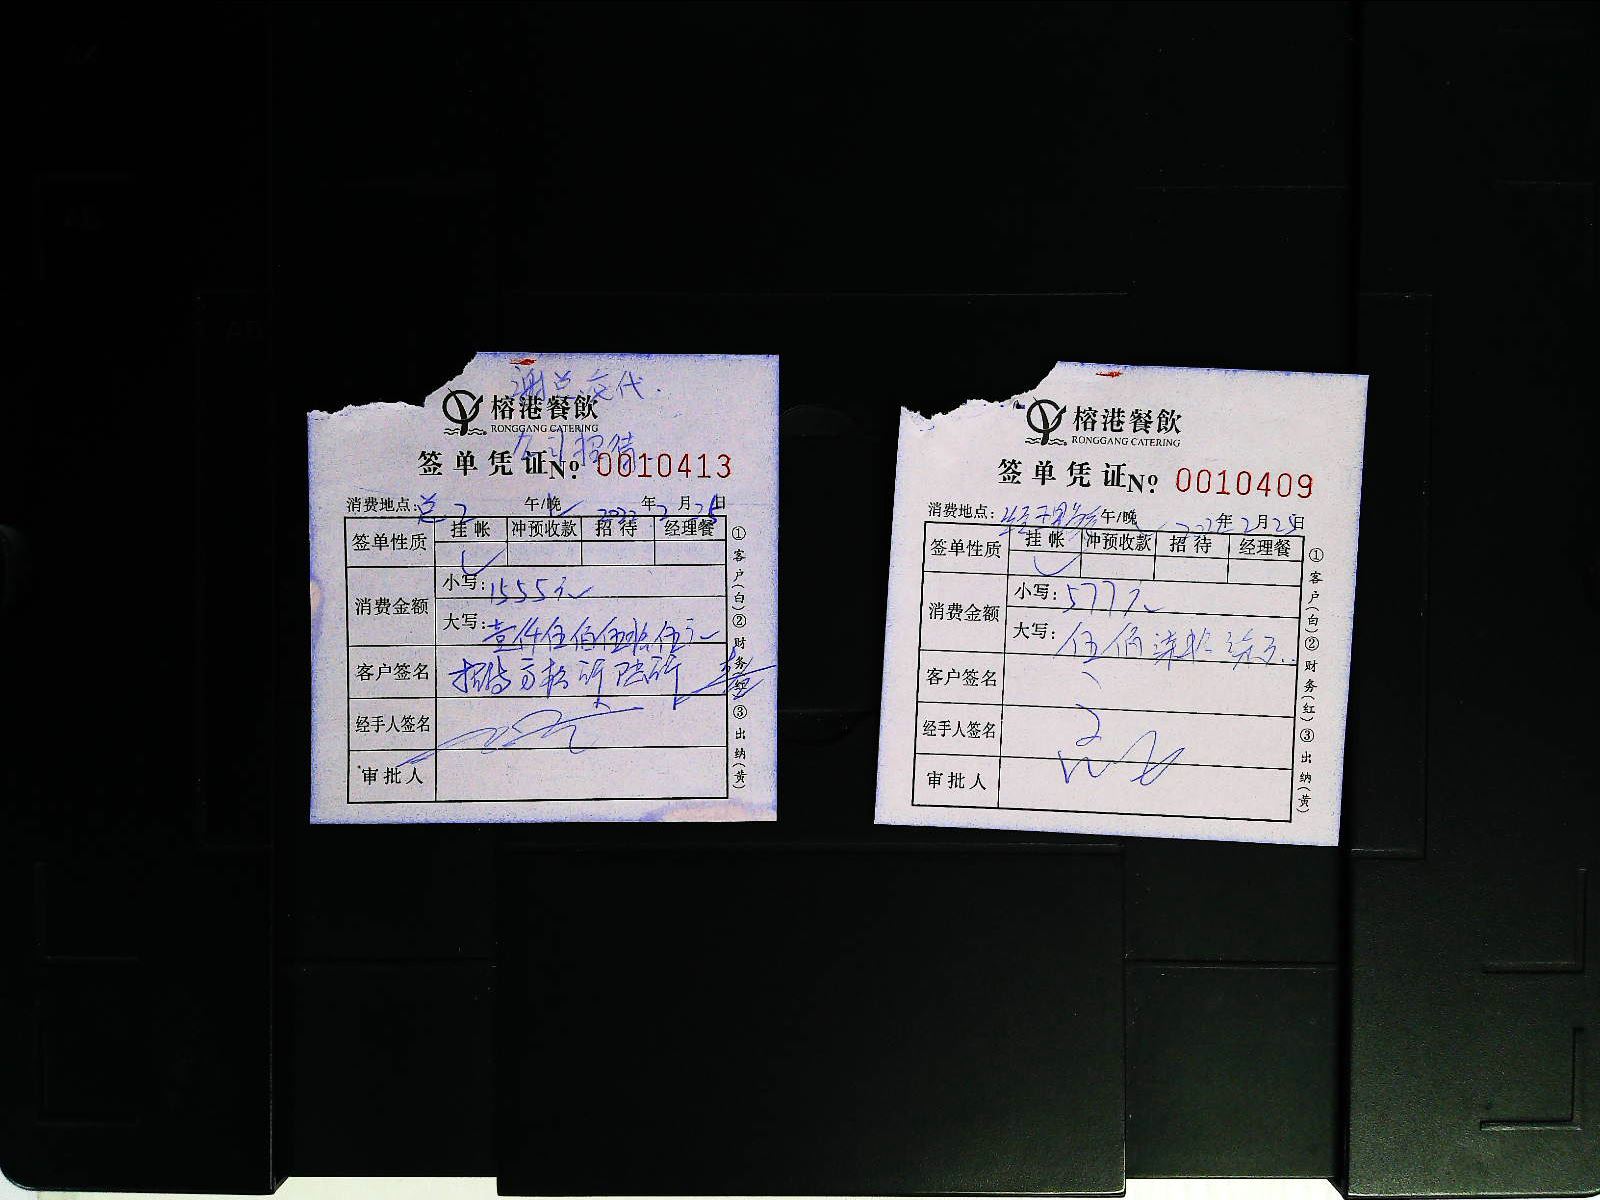 谢总交代.
榕港餐飲
RONGGANG CATERING
公司招待
签单凭证No. 0010413
消费地点:总2 午/晚 2022年2月25日
签单性质 挂帐 冲预收款 招待 经理餐
消费金额 小写:1555元
大写:壹仟伍佰伍拾伍元
客户签名 招待
经手人签名
审批人
①客户(白)②财务(红)③出纳(黄)
榕港餐飲
RONGGANG CATERING
签单凭证No. 0010409
消费地点: 午/晚 2022年2月25日
签单性质 挂帐 冲预收款 招待 经理餐
消费金额 小写:577元
大写:伍佰柒拾柒元
客户签名
经手人签名
审批人
①客户(白)②财务(红)③出纳(黄)